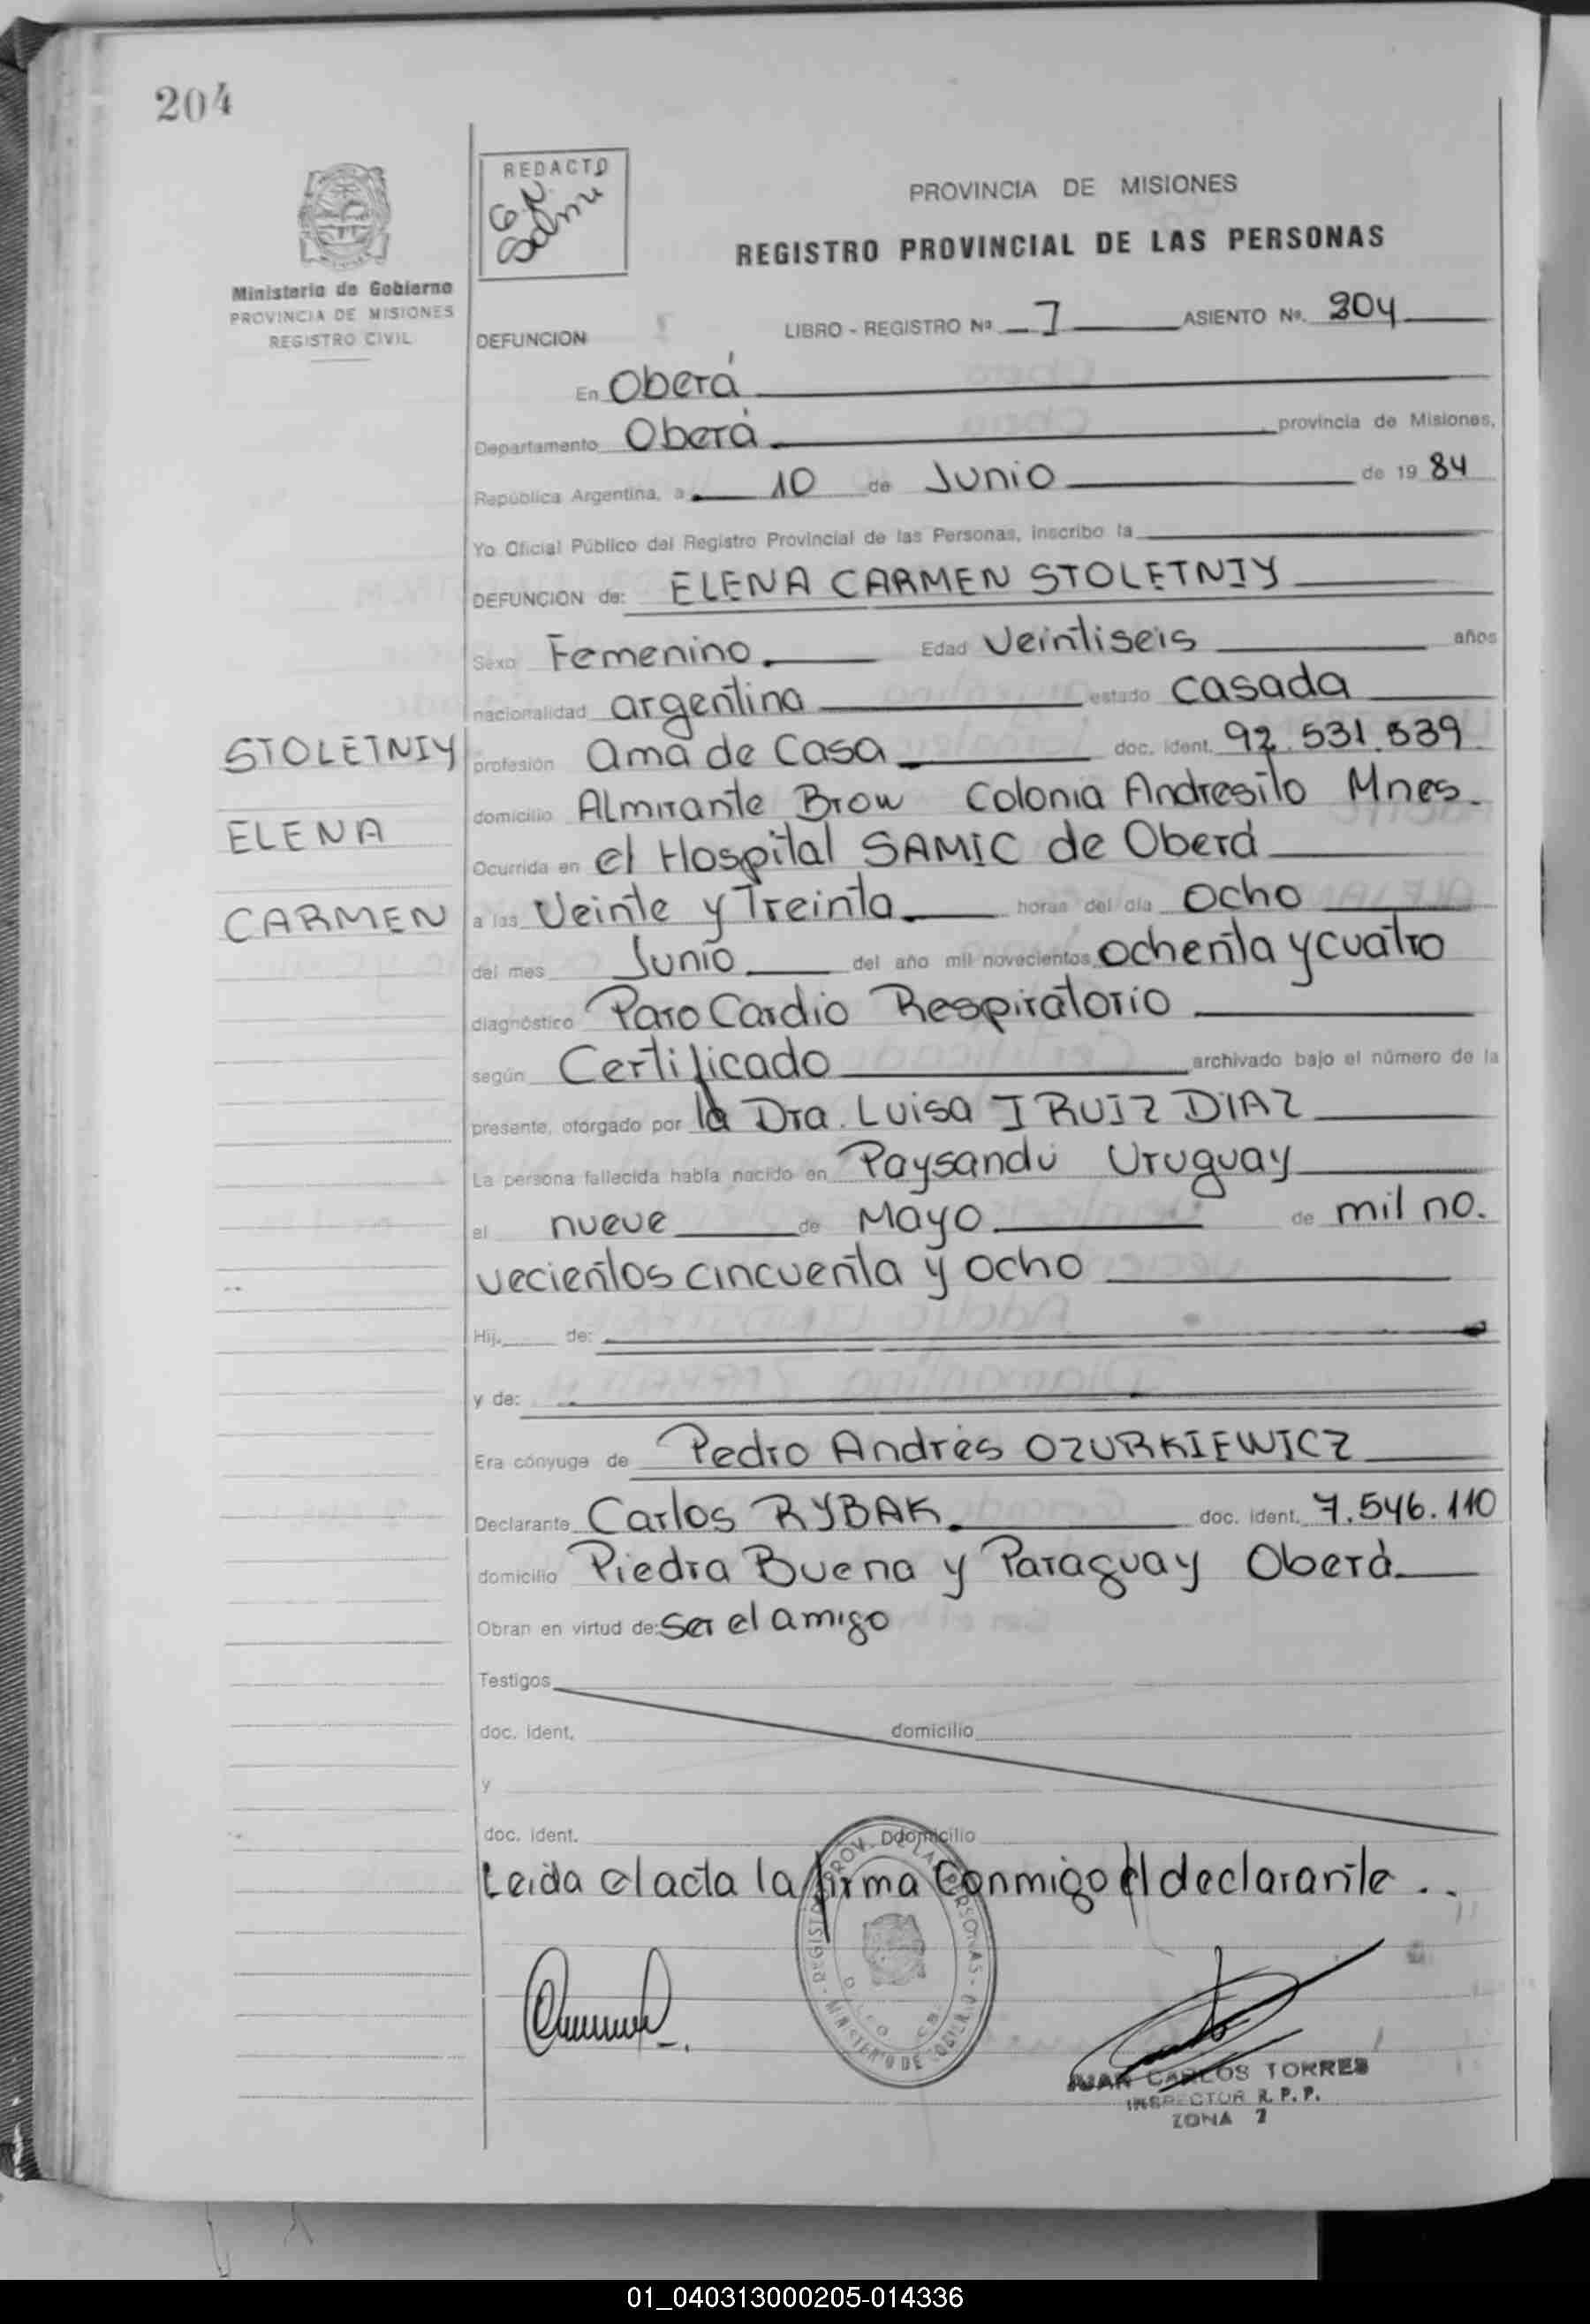 204
REDACTO
Ministerio de Gobierno
PROVINCIA DE MISIONES
REGISTRO CIVIL
PROVINCIA DE MISIONES
REGISTRO PROVINCIAL DE LAS PERSONAS
DEFUNCION LIBRO - REGISTRO Nº I ASIENTO Nº. 204
En Oberá
Departamento Oberá provincia de Misiones,
República Argentina, a 10 de Junio de 19 84
Yo Oficial Público del Registro Provincial de las Personas, inscribo la
DEFUNCION de: ELENA CARMEN STOLETNIY
Sexo Femenino Edad Veintiseis años
nacionalidad argentina estado casada
STOLETNIY
ELENA
CARMEN
profesión ama de Casa doc. ident. 92.531.539
domicilio Almirante Brow Colonia Andresito Mnes.
Ocurrida en el Hospital SAMIC de Oberá
a las Veinte y Treinta horas del día Ocho
del mes Junio del año mil novecientos ochenta y cuatro
diagnóstico Paro Cardio Respiratorio
según Certificado archivado bajo el número de la
presente, otorgado por la Dra. Luisa I RUIZ DIAZ
La persona fallecida había nacido en Paysandú Uruguay
el nueve de Mayo de mil no.
vecientos cincuenta y ocho
Hij de:
y de:
Era cónyuge de Pedro Andrés OZURKIEWICZ
Declarante Carlos RYBAK doc. ident. 7.546.110
domicilio Piedra Buena y Paraguay Oberá
Obran en virtud de: ser el amigo
Testigos
doc. ident. domicilio
y
doc. ident. domicilio
Leida el acta la firma Conmigo el declarante..
REGISTRO PROV. DE LAS PERSONAS - MINISTERIO DE GOBIERNO
JUAN CARLOS TORRES
INSPECTOR R.P.P.
ZONA 7
01_040313000205-014336